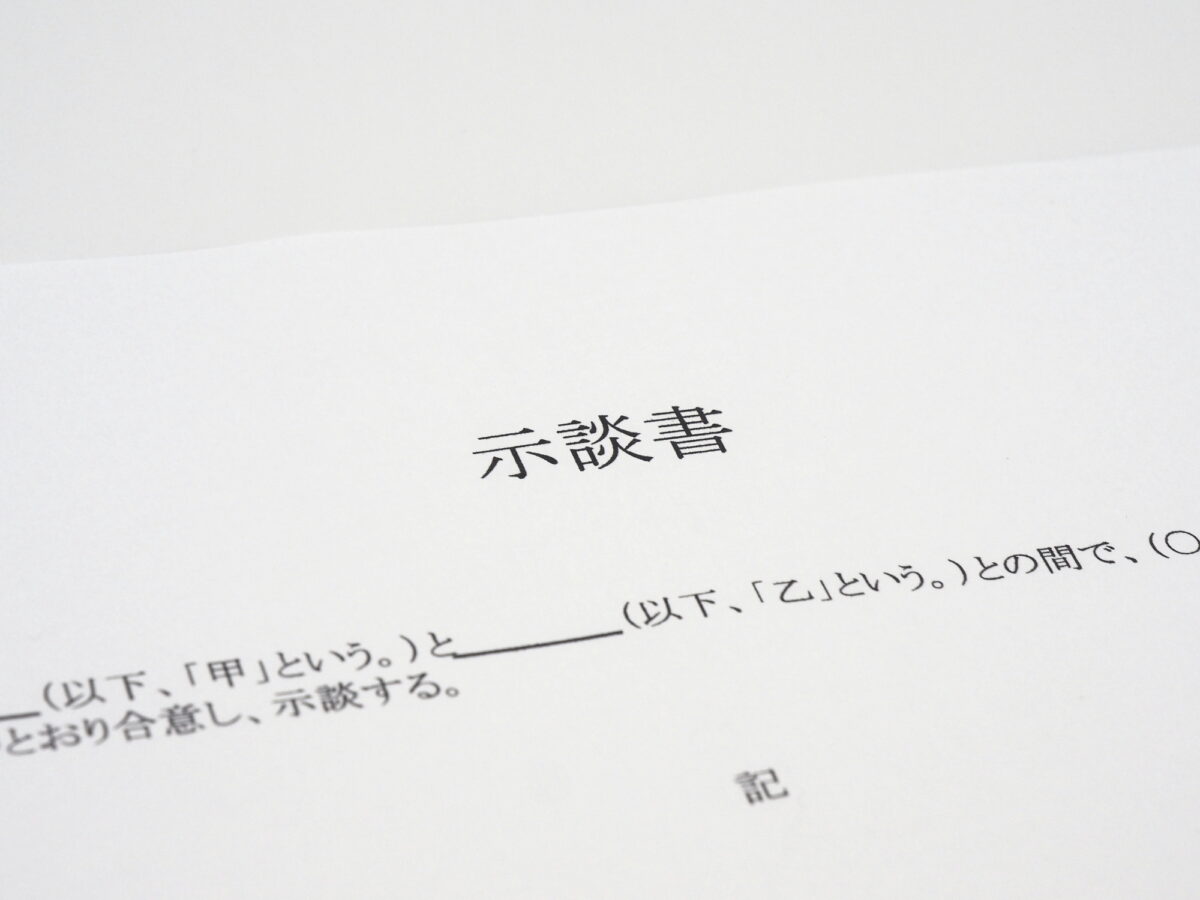 示談書
(以下、「甲」という。)と______(以下、「乙」という。)との間で、(〇
とおり合意し、示談する。
記